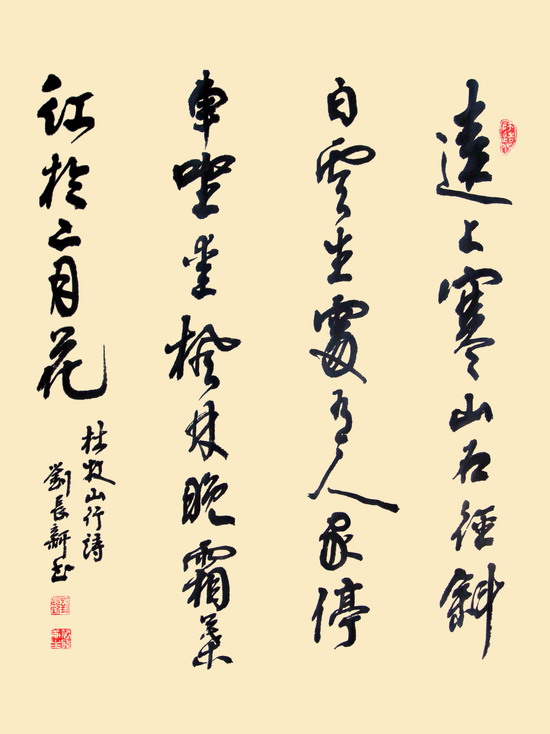 遠上寒山石徑斜
白雲生處有人家停
車坐愛楓林晚霜葉
紅於二月花
杜牧山行詩
劉長新書